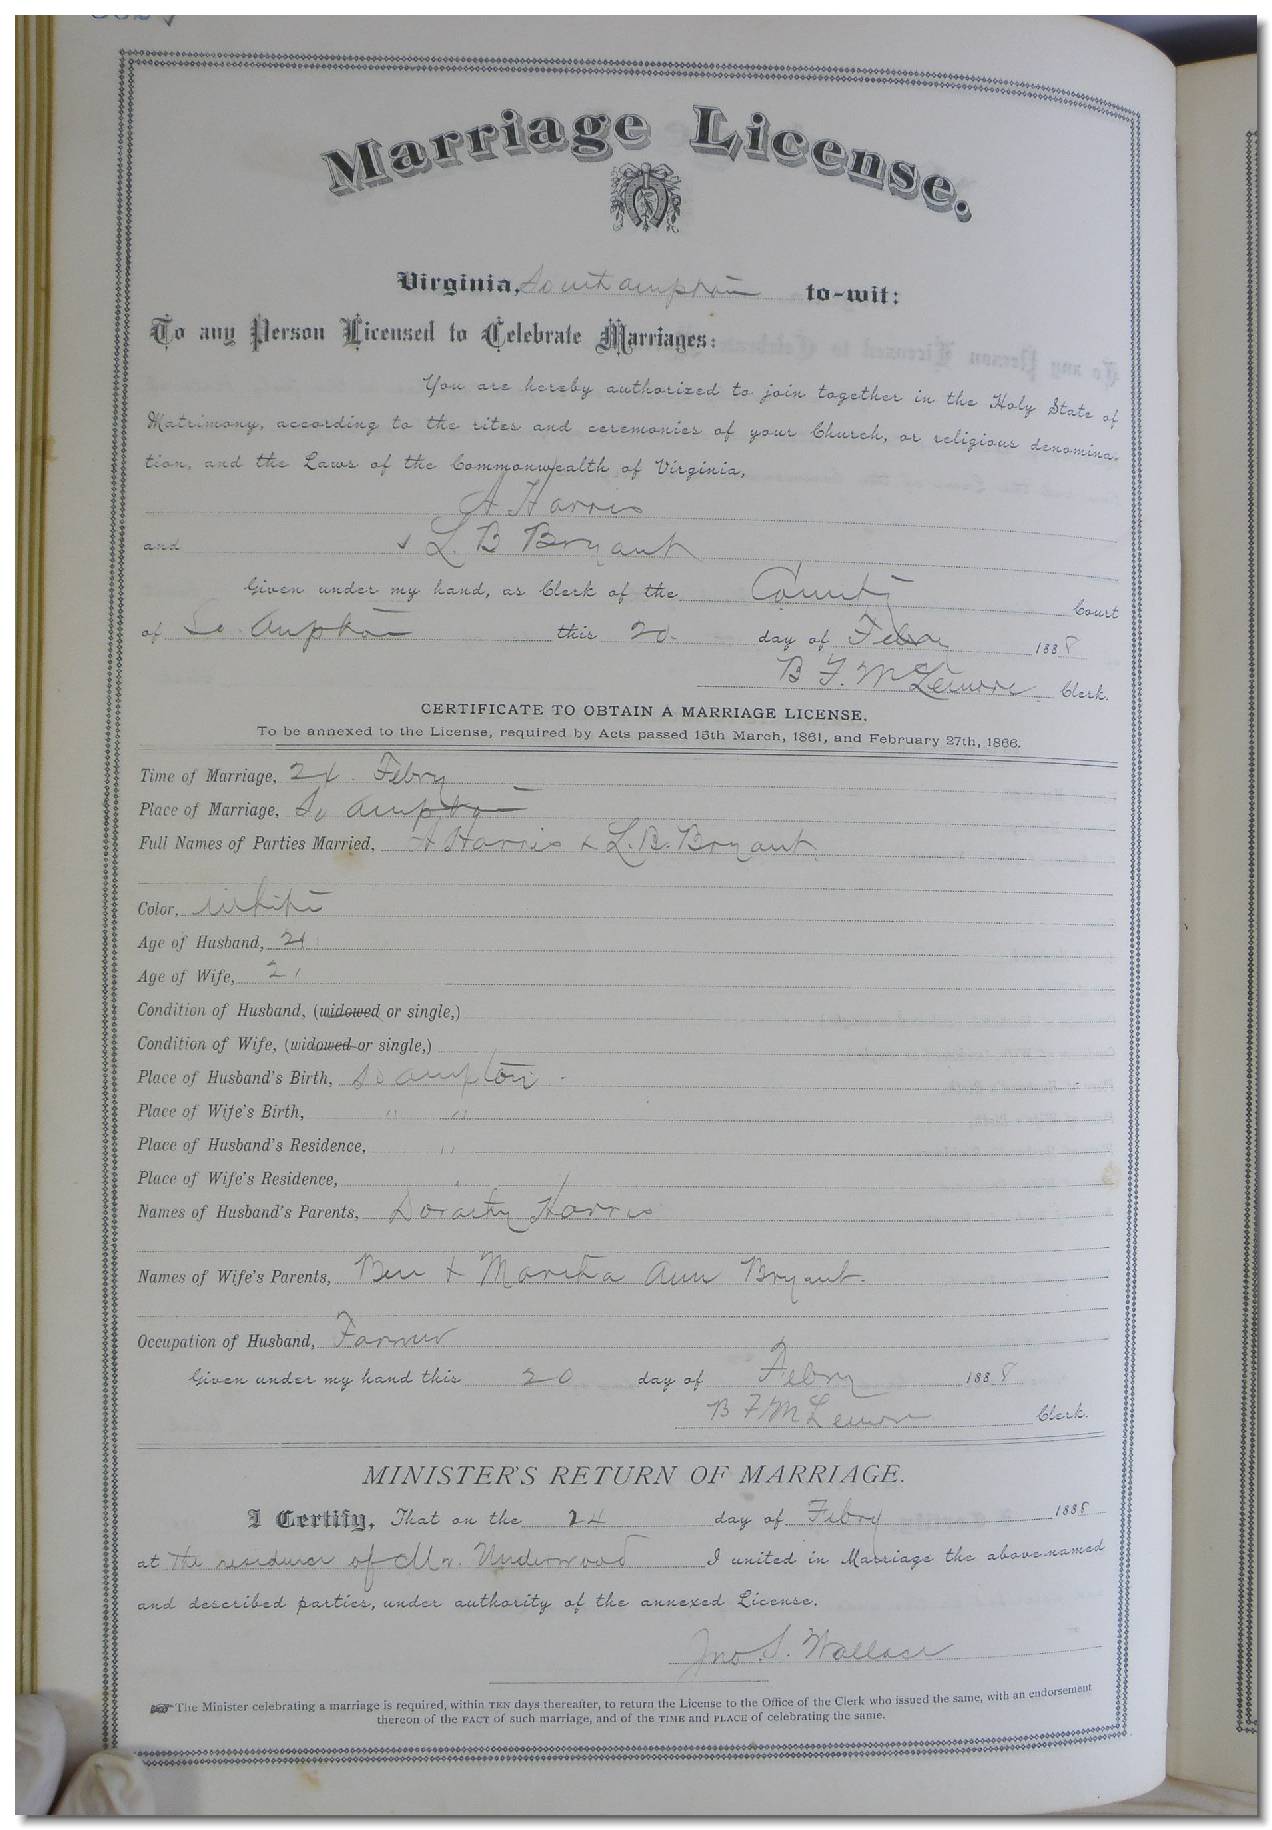 Marriage License.
Virginia, Southampton to-wit:
To any Person Licensed to Celebrate Marriages:
You are hereby authorized to join together in the Holy State of
Matrimony, according to the rites and ceremonies of your Church, or religious denomina-
tion, and the Laws of the Commonwealth of Virginia,
A Harris
and L. B Bryant
Given under my hand, as Clerk of the County Court
of So. Ampton this 20 day of Febry 1888
B F. McLemore Clerk.
CERTIFICATE TO OBTAIN A MARRIAGE LICENSE.
To be annexed to the License, required by Acts passed 15th March, 1861, and February 27th, 1866.
Time of Marriage, 24 Febry
Place of Marriage, So Ampton
Full Names of Parties Married, A Harris & L. B. Bryant
Color, White
Age of Husband, 21
Age of Wife, 21
Condition of Husband, (widowed or single,)
Condition of Wife, (widowed or single,)
Place of Husband's Birth, So ampton
Place of Wife's Birth, " "
Place of Husband's Residence, "
Place of Wife's Residence,
Names of Husband's Parents, Dorathy Harris
Names of Wife's Parents, Ben & Martha Ann Bryant.
Occupation of Husband, Farmer
Given under my hand this 20 day of Febry 1888
B F McLemore Clerk.
MINISTER'S RETURN OF MARRIAGE.
I Certify, That on the 24 day of Febry 1888
at the residence of Mr. Underwood I united in Marriage the above-named
and described parties, under authority of the annexed License.
Jno. S. Wallace
The Minister celebrating a marriage is required, within TEN days thereafter, to return the License to the Office of the Clerk who issued the same, with an endorsement
thereon of the FACT of such marriage, and of the TIME and PLACE of celebrating the same.